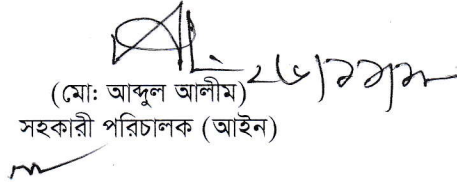 (মোঃ আব্দুল আলীম)
সহকারী পরিচালক (আইন)